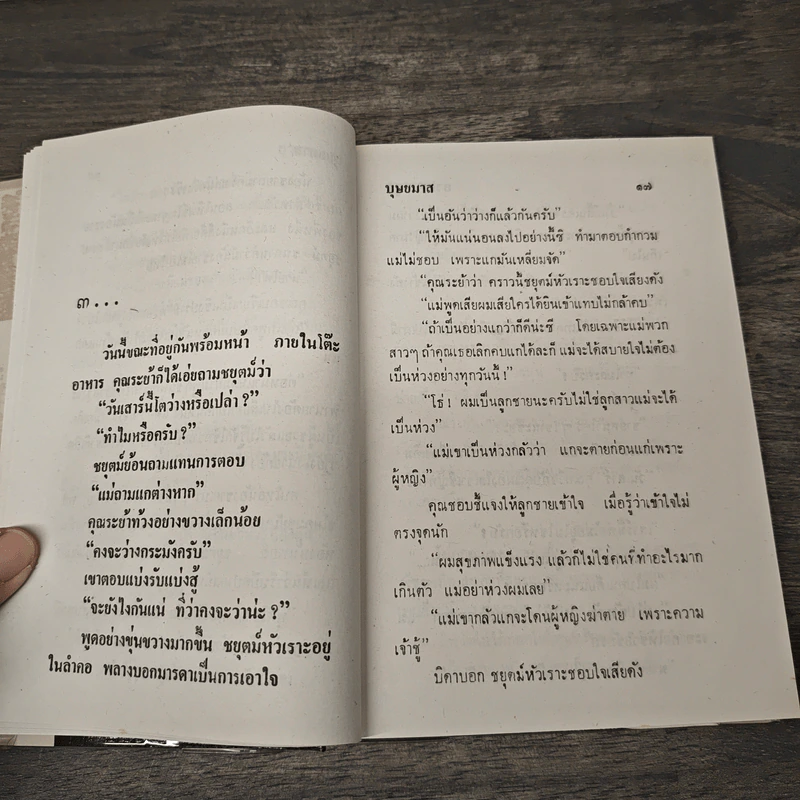 ๓...
วันนี้ขณะที่อยู่กันพร้อมหน้า ภายในโต๊ะ
อาหาร คุณระย้าก็ได้เอ่ยถามชยุตม์ว่า
“วันเสาร์นี้โตว่างหรือเปล่า ?”
“ทำไมหรือครับ ?”
ชยุตม์ย้อนถามแทนการตอบ
“แม่ถามแกต่างหาก”
คุณระย้าท้วงอย่างขวางเล็กน้อย
“คงจะว่างกระมังครับ”
เขาตอบแบ่งรับแบ่งสู้
“จะยังไงกันแน่ ที่ว่าคงจะว่าน่ะ ?”
พูดอย่างขุ่นขวางมากขึ้น ชยุตม์หัวเราะอยู่
ในลำคอ พลางบอกมารดาเป็นการเอาใจ
บุษยมาส ๑๗
“เป็นอันว่าว่างก็แล้วกันครับ”
“ให้มันแน่นอนลงไปอย่างนี้ซิ ทำมาตอบกำกวม
แม่ไม่ชอบ เพราะแกมันเหลี่ยมจัด”
“คุณระย้าว่า คราวนี้ชยุตม์หัวเราะชอบใจเสียงดัง
“แม่พูดเสียผมเสียใครได้ยินเข้าแทบไม่กล้าคบ”
“ถ้าเป็นอย่างแกว่าก็ดีน่ะซี โดยเฉพาะแม่พวก
สาวๆ ถ้าคุณเธอเลิกคบแกได้ละก็ แม่จะได้สบายใจไม่ต้อง
เป็นห่วงอย่างทุกวันนี้ !”
“โธ่ ! ผมเป็นลูกชายนะครับไม่ใช่ลูกสาวแม่จะได้
เป็นห่วง”
“แม่เขาเป็นห่วงกลัวว่า แกจะตายก่อนแก่เพราะ
ผู้หญิง”
คุณชอบชี้แจงให้ลูกชายเข้าใจ เมื่อรู้ว่าเข้าใจไม่
ตรงจุดนัก
“ผมสุขภาพแข็งแรง แล้วก็ไม่ใช่คนที่ทำอะไรมาก
เกินตัว แม่อย่าห่วงผมเลย”
“แม่เขากลัวแกจะโดนผู้หญิงฆ่าตาย เพราะความ
เจ้าชู้”
บิดาบอก ชยุตม์หัวเราะชอบใจเสียดัง